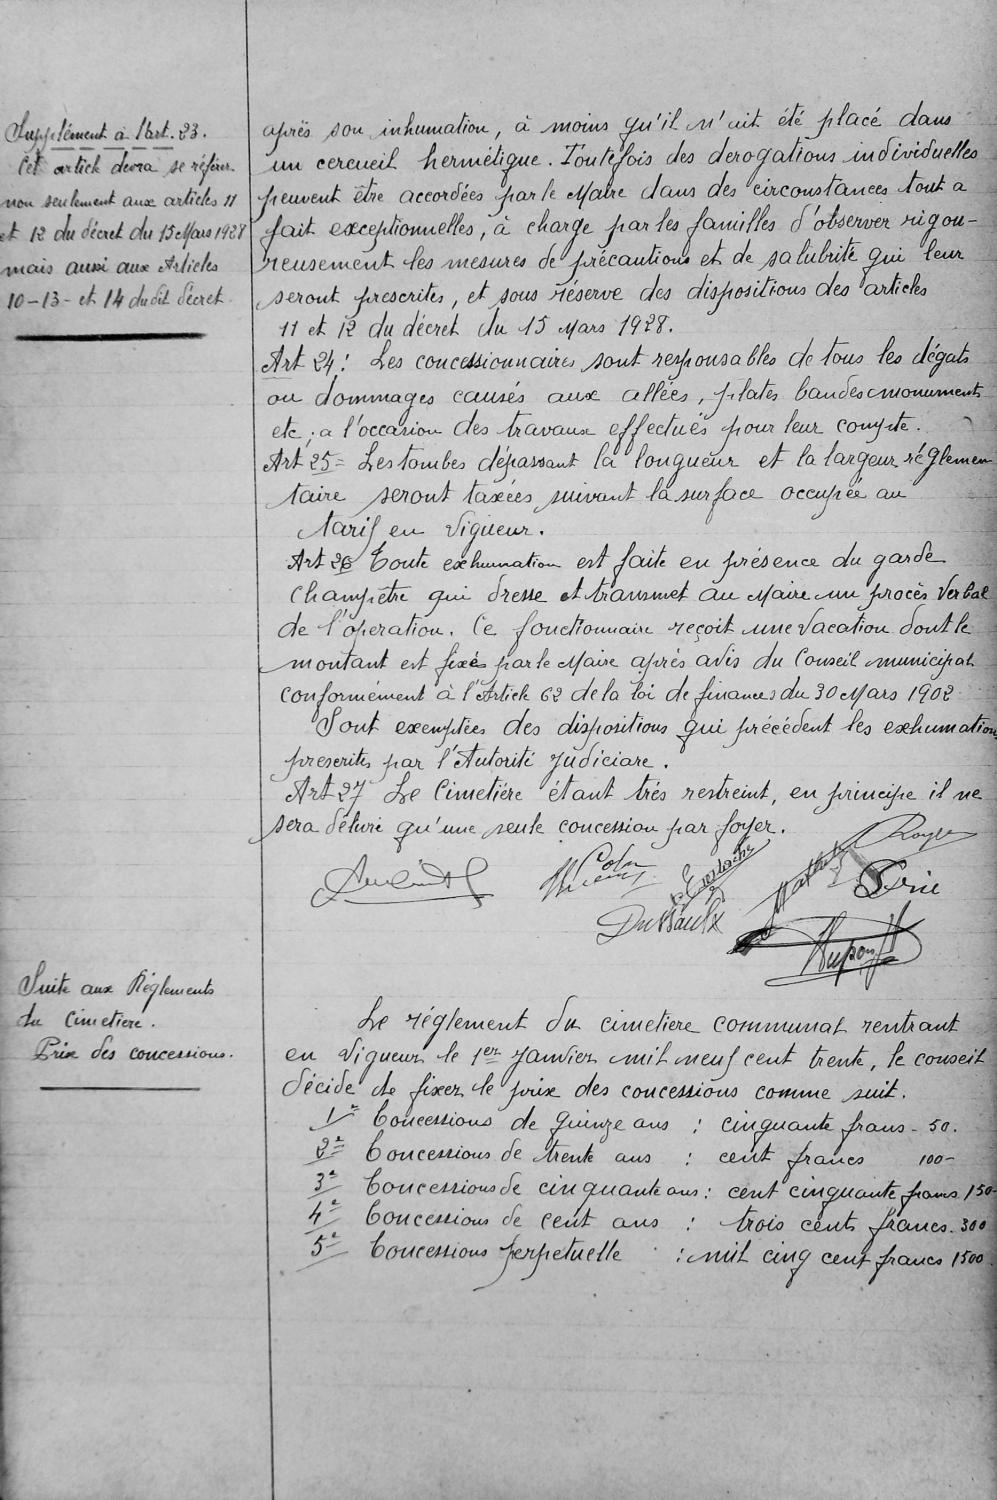 Supplément à l'art. 23.
Cet article devra se référer
non seulement aux articles 11
et 12 du décret du 15 Mars 1928
mais aussi aux Articles
10-13- et 14 du dit décret
après son inhumation, à moins qu'il n'ait été placé dans
un cercueil hermétique. Toutefois des derogations individuelles
peuvent être accordées par le Maire dans des circonstances tout a
fait exceptionnelles, à charge par les familles d'observer rigou-
reusement les mesures de précautions et de salubrité qui leur
seront prescrites, et sous réserve des dispositions des articles
11 et 12 du décret du 15 Mars 1928.
Art 24: Les concessionnaires sont responsables de tous les dégats
ou dommages causés aux allées, plates bandes monuments
etc; a l'occasion des travaux effectués pour leur compte.
Art 25= Les tombes dépassant la longueur et la largeur réglemen
taire seront taxées suivant la surface occupée au
tarif en vigueur.
Art 26 Toute exhumation est faite en présence du garde
Champêtre qui dresse et transmet au Maire un procès Verbal
de l'opération. Ce fonctionnaire reçoit une Vacation dont le
montant est fixés par le Maire après avis du Conseil municipal
conformément à l'Article 62 de la loi de finances du 30 Mars 1902
Sont exemptées des dispositions qui précédent les exhumations
prescrites par l'Autorité judiciare.
Art 27 Le Cimetière étant très restreint, en principe il ne
sera délivré qu'une seule concession par foyer.
Colin
Dussaulx
Dupont
Suite aux Réglements
du Cimetière.
Prix des concessions.
Le réglement du cimetiere communal rentrant
en vigueur le 1er Janvier mil neuf cent trente, le conseil
décide de fixer le prix des concessions comme suit.
1° Concessions de quinze ans : cinquante frans - 50.
2° Concessions de trente ans : cent francs 100-
3° Concessions de cinquante ans : cent cinquante frans 150-
4° Concessions de cent ans : trois cents francs. 300
5° Concessions perpetuelle : mil cinq cent francs 1500.